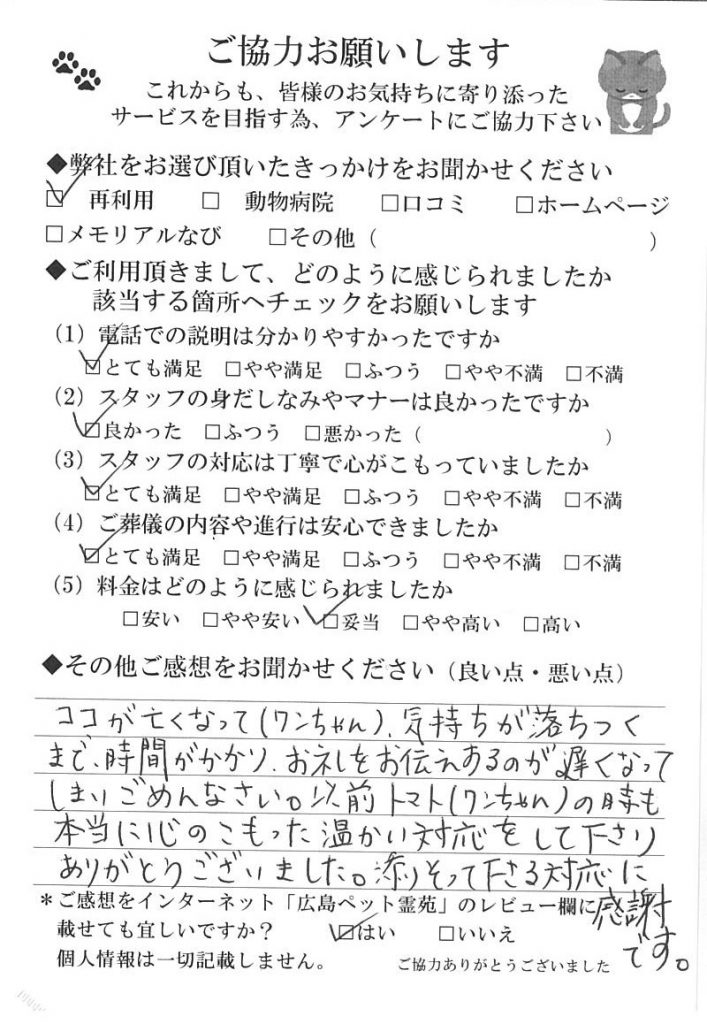 ご協力お願いします
これからも、皆様のお気持ちに寄り添った
サービスを目指す為、アンケートにご協力下さい
◆弊社をお選び頂いたきっかけをお聞かせください
☑ 再利用 □ 動物病院 □口コミ □ホームページ
□メモリアルなび □その他（ ）
◆ご利用頂きまして、どのように感じられましたか
該当する箇所へチェックをお願いします
（1）電話での説明は分かりやすかったですか
☑とても満足 □やや満足 □ふつう □やや不満 □不満
（2）スタッフの身だしなみやマナーは良かったですか
☑良かった □ふつう □悪かった（ ）
（3）スタッフの対応は丁寧で心がこもっていましたか
☑とても満足 □やや満足 □ふつう □やや不満 □不満
（4）ご葬儀の内容や進行は安心できましたか
☑とても満足 □やや満足 □ふつう □やや不満 □不満
（5）料金はどのように感じられましたか
□安い □やや安い ☑妥当 □やや高い □高い
◆その他ご感想をお聞かせください（良い点・悪い点）
ココが亡くなって(ワンちゃん)、気持ちが落ちつく
まで、時間がかかり、お礼をお伝えあるのが遅くなって
しまいごめんなさい。以前トマト(ワンちゃん)の時も
本当に心のこもった温かい対応をして下さり
ありがとうございました。添りそって下さる対応に
感謝
です。
＊ご感想をインターネット「広島ペット霊苑」のレビュー欄に
載せても宜しいですか？ ☑はい □いいえ
個人情報は一切記載しません。 ご協力ありがとうございました